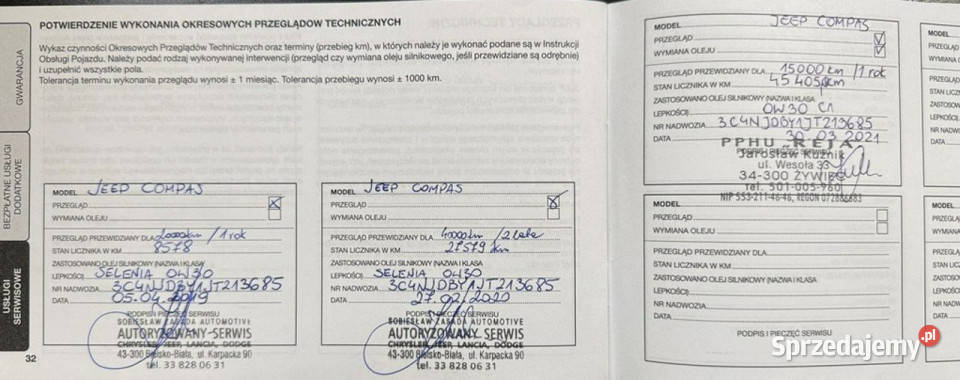 GWARANCJA
BEZPŁATNE USŁUGI
DODATKOWE
USŁUGI
SERWISOWE
32
POTWIERDZENIE WYKONANIA OKRESOWYCH PRZEGLĄDÓW TECHNICZNYCH
Wykaz czynności Okresowych Przeglądów Technicznych oraz terminy (przebieg km), w których należy je wykonać podane są w Instrukcji
Obsługi Pojazdu. Należy podać rodzaj wykonywanej interwencji (przegląd czy wymiana oleju silnikowego, jeśli przewidziane są odrębnie)
i uzupełnić wszystkie pola.
Tolerancja terminu wykonania przeglądu wynosi ± 1 miesiąc. Tolerancja przebiegu wynosi ± 1000 km.
MODEL JEEP COMPAS
PRZEGLĄD
WYMIANA OLEJU
PRZEGLĄD PRZEWIDZIANY DLA 20000km / 1 rok
STAN LICZNIKA W KM 8578
ZASTOSOWANO OLEJ SILNIKOWY (NAZWA I KLASA
LEPKOŚCI) SELENIA 0W30
NR NADWOZIA 3C4NJDBY1JT213685
DATA 05.04.2019
PODPIS I PIECZĘĆ SERWISU
SOBIESŁAW ZASADA AUTOMOTIVE
AUTORYZOWANY SERWIS
CHRYSLER, JEEP, LANCIA, DODGE
43-300 Bielsko-Biała, ul. Karpacka 90
tel. 33 828 06 31
MODEL JEEP COMPAS
PRZEGLĄD
WYMIANA OLEJU
PRZEGLĄD PRZEWIDZIANY DLA 40000km / 2 lata
STAN LICZNIKA W KM 27579 km
ZASTOSOWANO OLEJ SILNIKOWY (NAZWA I KLASA
LEPKOŚCI) SELENIA 0W30
NR NADWOZIA 3C4NJDBY1JT213685
DATA 27.02.2020
PODPIS I PIECZĘĆ SERWISU
SOBIESŁAW ZASADA AUTOMOTIVE
AUTORYZOWANY SERWIS
CHRYSLER, JEEP, LANCIA, DODGE
43-300 Bielsko-Biała, ul. Karpacka 90
tel. 33 828 06 31
MODEL JEEP COMPAS
PRZEGLĄD
WYMIANA OLEJU
PRZEGLĄD PRZEWIDZIANY DLA 15000km / 1 rok
STAN LICZNIKA W KM 45405km
ZASTOSOWANO OLEJ SILNIKOWY (NAZWA I KLASA
LEPKOŚCI) 0W30 C1
NR NADWOZIA 3C4NJDBY1JT213685
DATA 30.03.2021
PPHU "REJA"
PODPIS I PIECZĘĆ SERWISU
Jarosław Kuźnik
ul. Wesoła 33
34-300 ŻYWIEC
tel. 501-005-960
NIP 553-211-46-46, REGON
MODEL
PRZEGLĄD
WYMIANA OLEJU
PRZEGLĄD PRZEWIDZIANY DLA
STAN LICZNIKA W KM
ZASTOSOWANO OLEJ SILNIKOWY (NAZWA I KLASA
LEPKOŚCI)
NR NADWOZIA
DATA
PODPIS I PIECZĘĆ SERWISU
MODEL
PRZEGLĄD
Sprzedajemy.pl